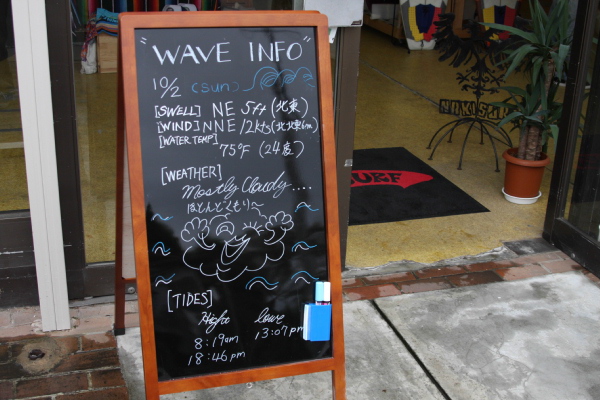 "WAVE INFO"
10/2 (sun)
[SWELL] NE 5ft (北東)
[WIND] NNE 12kts (北北東6m)
[WATER TEMP]
75°F (24度)
[WEATHER]
Mostly Cloudy....
ほとんどくもり〜
[TIDES]
High Lowe
8:19am 13:07pm
18:46pm
SURF